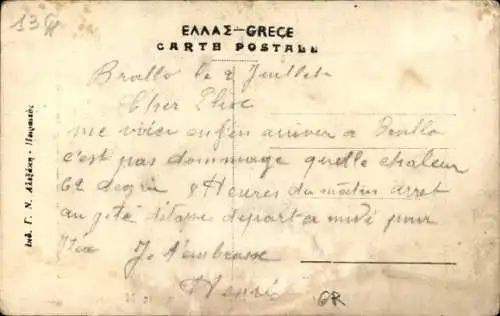 13
ΕΛΛΑΣ-GRÈCE
CARTE POSTALE
Brallo le 2 Juillet
Cher
me voici enfin arriver a Brallo
c'est pas dommage quelle chaleur
62 degrés 8 Heures du matin arret
au gite départ a midi pour
Je t'embrasse
Henri
GR
Εκδ. Γ. Ν. Αλεξάκη - Πειραιεύς